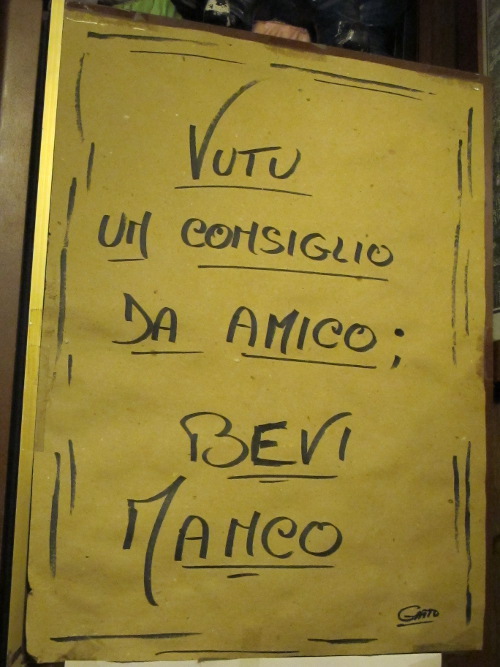 VUTU
UN CONSIGLIO
DA AMICO;
BEVI
MANCO
GATTO